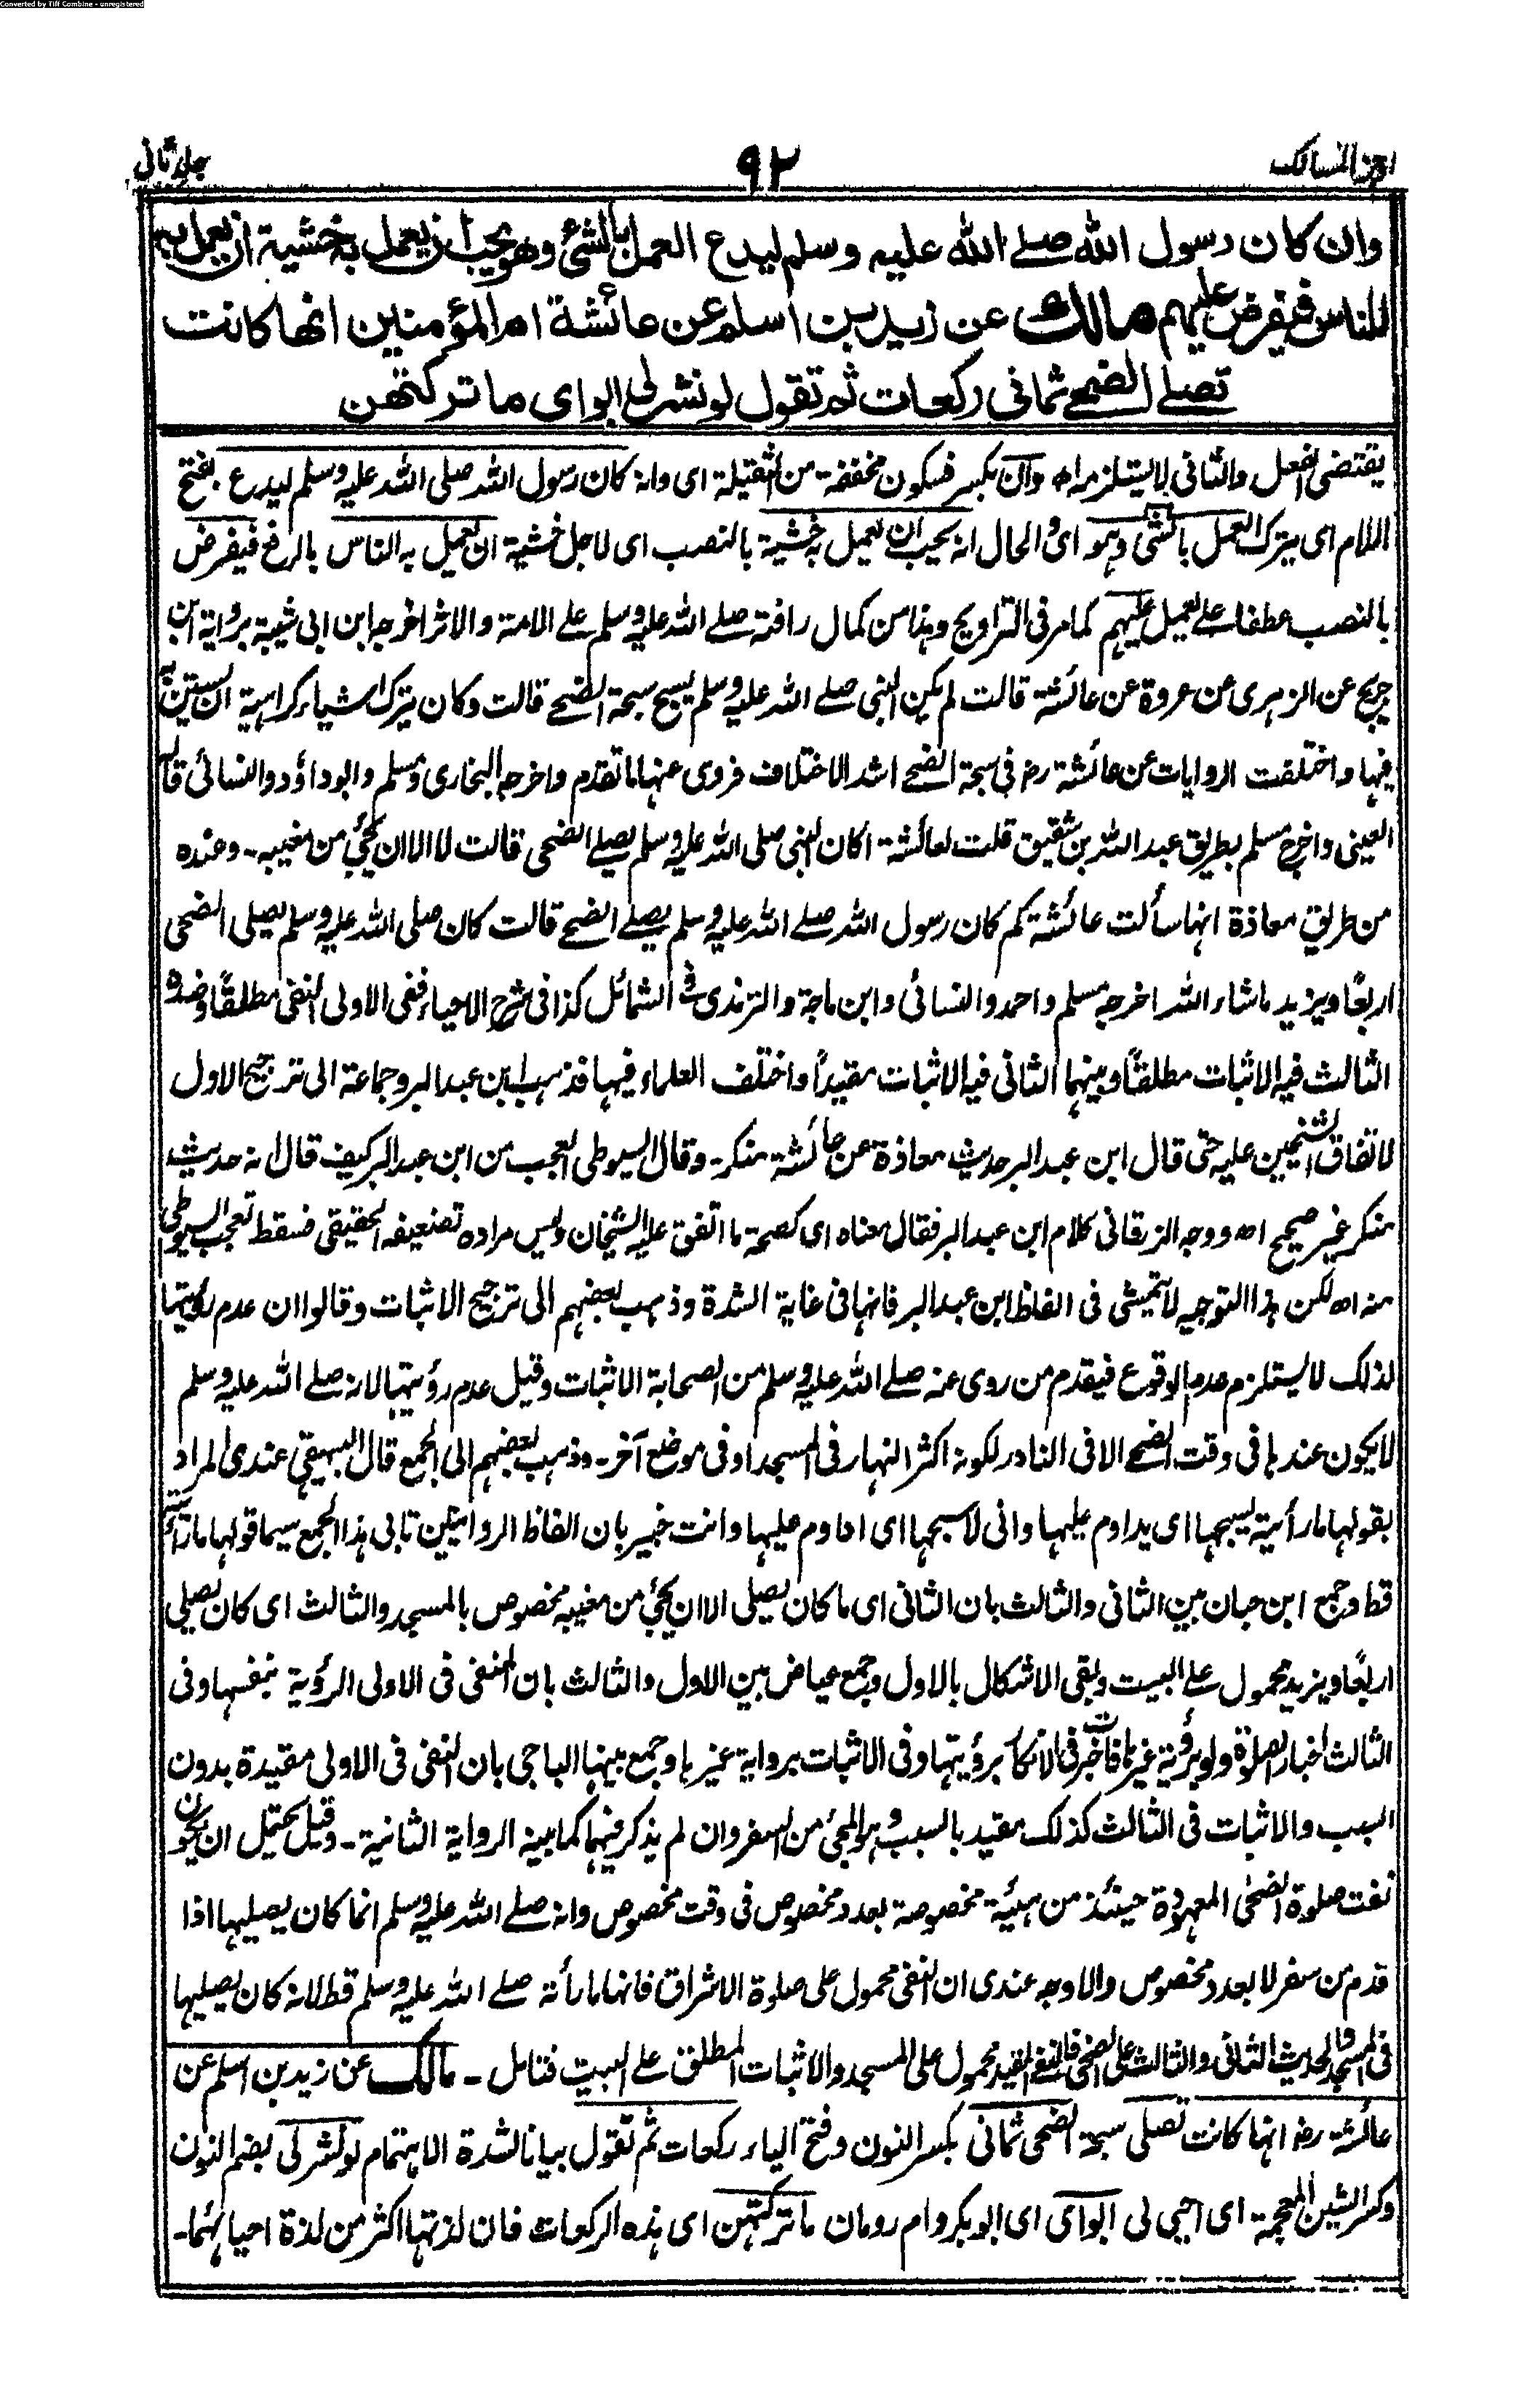 Converted by Tiff Combine - unregistered
اوجز المسالك
٩٢
جلد ثانی
وان كان رسول الله صلے الله عليه وسلم ليدع العمل بالشئ وهو يحب ان يعمل به خشية ان يعمل به
الناس فيفرض عليهم مالك عن زيد بن اسلم عن عائشة ام المؤمنين انها كانت
تصلے الضحے ثمانی ركعات ثم تقول لو نشر لی ابوای ما تركتهن
يقتضی الفعل والثانی لا يستلزمه اه وان بكسر فسكون مخففة من الثقيلة ای وانه كان رسول الله صلی الله عليه وسلم ليدع بفتح
اللام ای يترك العمل بالشئ وهو ای والحال انه يحب ان يعمل به خشية بالنصب ای لاجل خشية ان يعمل به الناس بالرفع فيفرض
بالنصب عطفا علے يعمل عليهم كما مر فی التراويح وهذا من كمال رافته صلے الله عليه وسلم علے الامة والاثر اخرجه ابن ابی شيبة برواية ابن
جريج عن الزهری عن عروة عن عائشة قالت لم يكن النبی صلے الله عليه وسلم يسبح سبحة الضحے قالت وكان يترك اشياء كراهية ان يستن به
فيها واختلفت الروايات عن عائشة رض فی سبحة الضحے اشد الاختلاف فروی عنها ما تقدم واخرجه البخاری ومسلم وابوداؤد والنسائی قاله
العينی واخرج مسلم بطريق عبد الله بن شقيق قلت لعائشة اكان النبی صلی الله عليه وسلم يصلے الضحی قالت لا الا ان يجئ من مغيبه - وعنده
من طريق معاذة انها سألت عائشة كم كان رسول الله صلے الله عليه وسلم يصلے الضحے قالت كان صلی الله عليه وسلم يصلی الضحی
اربعًا ويزيد ما شاء الله اخرجه مسلم واحمد والنسائی وابن ماجة والترمذی فی الشمائل كذا فی شرح الاحياء ففی الاولی النفی مطلقًا وضده
الثالث فيه الاثبات مطلقًا وبينهما الثانی فيه الاثبات مقيدًا واختلف العلماء فيها فذهب ابن عبد البر وجماعة الی ترجيح الاول
لاتفاق الشيخين عليه حتی قال ابن عبد البر حديث معاذة عن عائشة منكر - وقال السيوطی العجب من ابن عبد البر كيف قال انه حديث
منكر غير صحيح اه ووجه الزرقانی كلام ابن عبد البر فقال معناه ای كصحة ما اتفق عليه الشيخان وليس مراده تضعيفه الحقيقی فسقط تعجب السيوطی
منه اه لكن هذا التوجيه لا يتمشی فی الفاظ ابن عبد البر فانها فی غاية الشدة وذهب بعضهم الی ترجيح الاثبات وقالوا ان عدم رؤيتها
لذلك لا يستلزم عدم الوقوع فيقدم من روی عنه صلے الله عليه وسلم من الصحابة الاثبات وقيل عدم رؤيتها لانه صلے الله عليه وسلم
لا يكون عندها فی وقت الضحے الا فی النادر لكونه اكثر النهار فی المسجد او فی موضع آخر - وذهب بعضهم الی الجمع قال البيهقی عندی المراد
بقولها ما رأيته يسبحها ای يداوم عليها وانی لاسبحها ای اداوم عليها وانت خبير بان الفاظ الروايتين تابی هذا الجمع سيما قولها ما رأيته
قط وجمع ابن حبان بين الثانی والثالث بان الثانی ای ما كان يصلی الا ان يجئ من مغيبه مخصوص بالمسجد والثالث ای كان يصلی
اربعًا ويزيد محمول علے البيت وبقی الاشكال بالاول وجمع عياض بين الاول والثالث بان المنفی فی الاولی الرؤية بنفسها وفی
الثالث اخبار الصلوة ولو برؤية غيرها فاخبرت فی الانكار برؤيتها وفی الاثبات برواية غيرها وجمع بينها الباجی بان النفی فی الاولی مقيدة بدون
السبب والاثبات فی الثالث كذلك مقيد بالسبب وهو المجئ من السفر وان لم يذكر فيهما كما بينه الرواية الثانية - وقيل يحتمل ان يكون
نفت صلوة الضحٰی المعهودة حينئذ من هيئة مخصوصة بعدد مخصوص فی وقت مخصوص وانه صلے الله عليه وسلم انما كان يصليها اذا
قدم من سفر لا بعدد مخصوص والاوجه عندی ان النفی محمول علی صلوة الاشراق فانها ما رأته صلے الله عليه وسلم قط لانه كان يصليها
فی المسجد والحديث الثانی والثالث علی الضحی فالنفی المقيد محمول علی المسجد والاثبات المطلق علے البيت فتامل - مالك عن زيد بن اسلم عن
عائشة رض انها كانت تصلی سبحة الضحی ثمانی بكسر النون وفتح الياء ركعات ثم تقول بيانا لشدة الاهتمام لو نشر لی بضم النون
وكسر الشين المعجمة ای احيی لی ابوای ای ابو بكر وام رومان ما تركتهن ای هذه الركعات فان لذتها اكثر من لذة احيائهما -